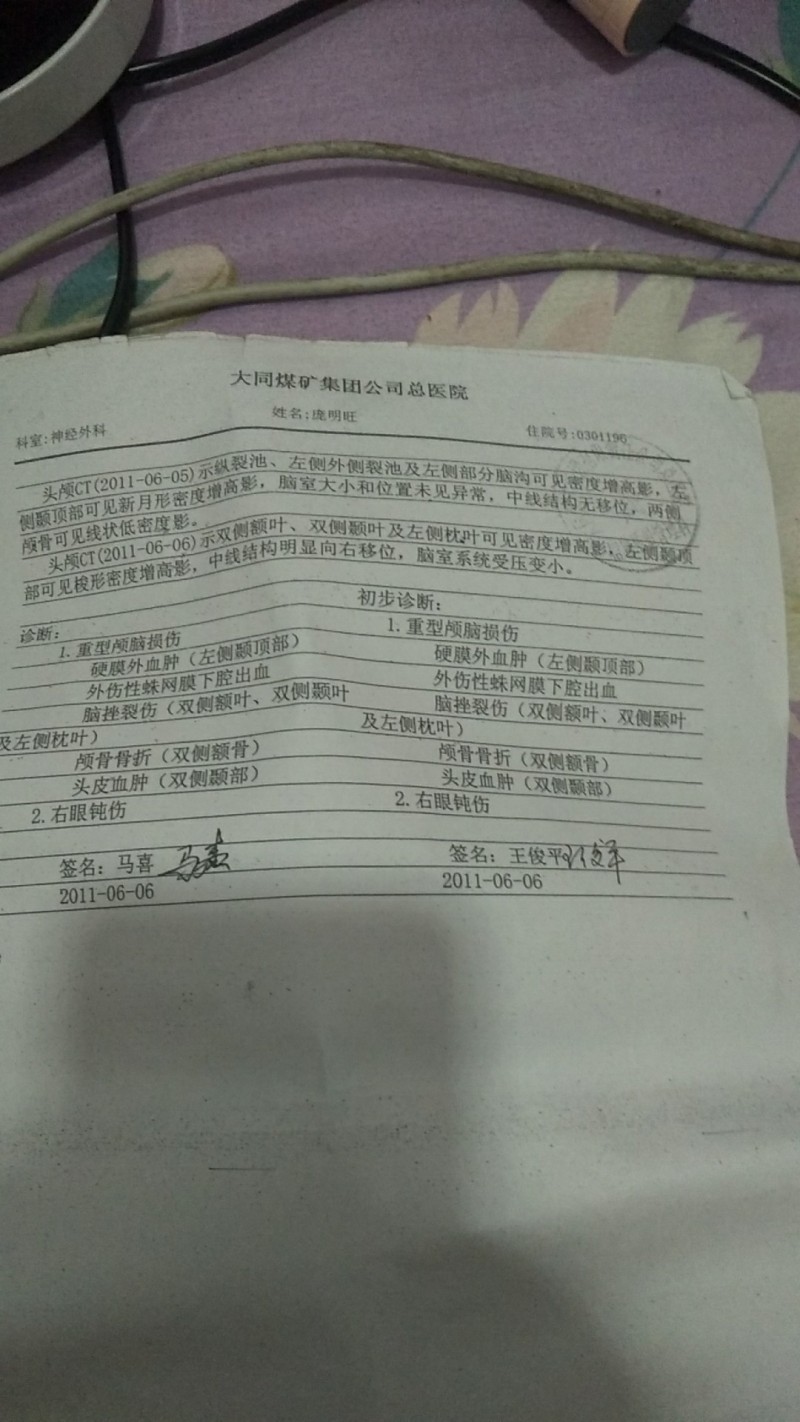 大同煤矿集团公司总医院
科室:神经外科 姓名:庞明旺 住院号:0301196
头颅CT(2011-06-05)示纵裂池、左侧外侧裂池及左侧部分脑沟可见密度增高影，左
侧颞顶部可见新月形密度增高影，脑室大小和位置未见异常，中线结构无移位，两侧
颅骨可见线状低密度影。
头颅CT(2011-06-06)示双侧额叶、双侧颞叶及左侧枕叶可见密度增高影，左侧颞顶
部可见梭形密度增高影，中线结构明显向右移位，脑室系统受压变小。
诊断:
1.重型颅脑损伤
硬膜外血肿（左侧颞顶部）
外伤性蛛网膜下腔出血
脑挫裂伤（双侧额叶、双侧颞叶
及左侧枕叶）
颅骨骨折（双侧额骨）
头皮血肿（双侧颞部）
2.右眼钝伤
签名：马喜 马喜
2011-06-06
初步诊断:
1.重型颅脑损伤
硬膜外血肿（左侧颞顶部）
外伤性蛛网膜下腔出血
脑挫裂伤（双侧额叶、双侧颞叶
及左侧枕叶）
颅骨骨折（双侧额骨）
头皮血肿（双侧颞部）
2.右眼钝伤
签名：王俊平
2011-06-06